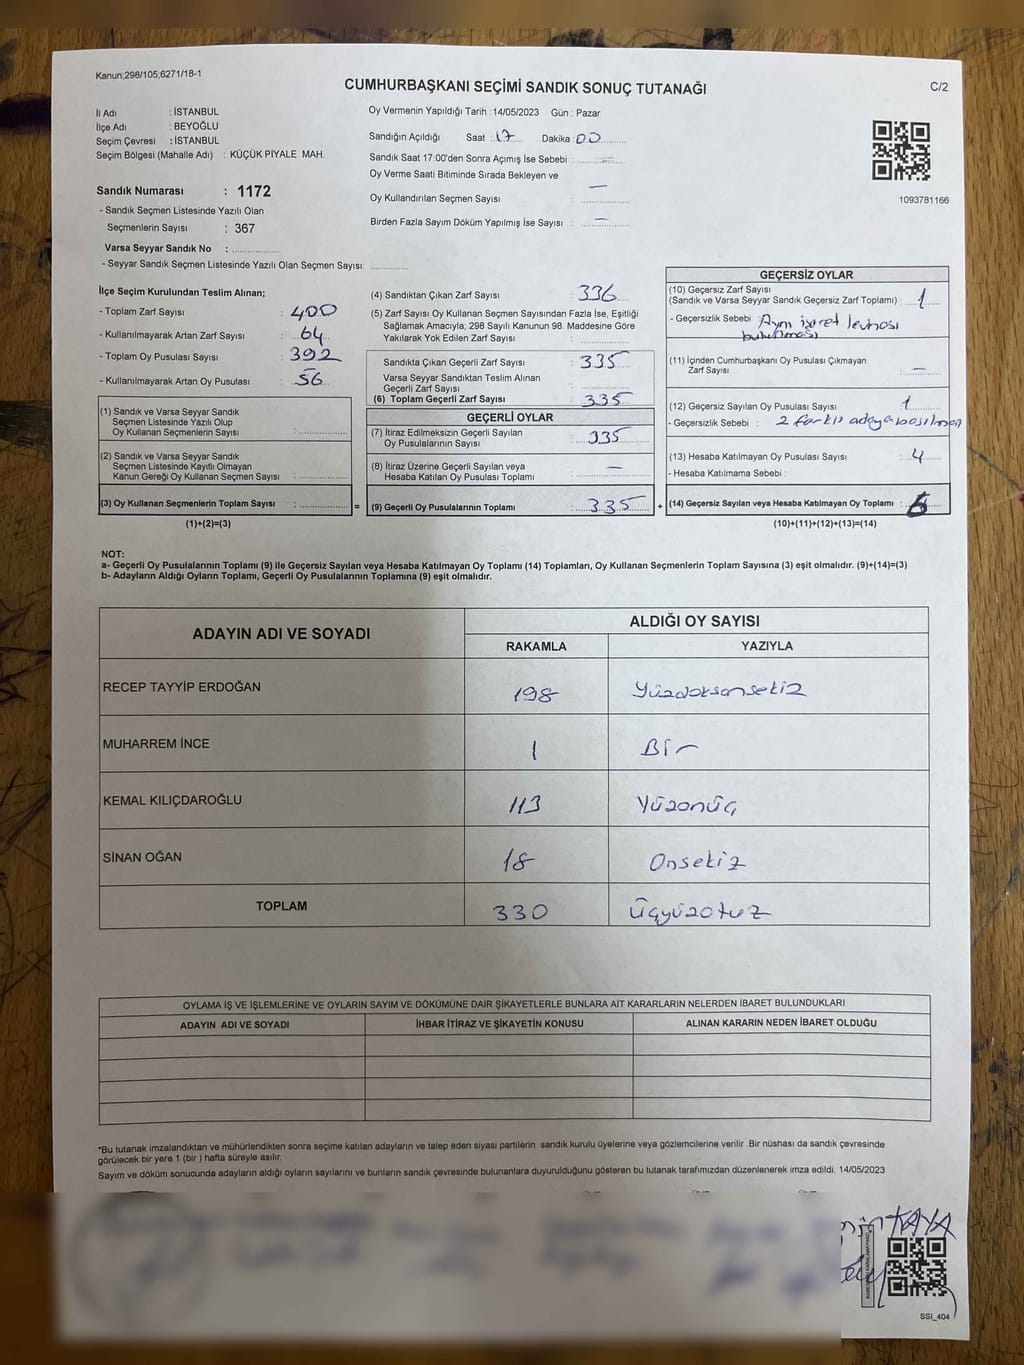 Kanun;298/105;6271/18-1
CUMHURBAŞKANI SEÇİMİ SANDIK SONUÇ TUTANAĞI
C/2
İl Adı : İSTANBUL
İlçe Adı : BEYOĞLU
Seçim Çevresi : İSTANBUL
Seçim Bölgesi (Mahalle Adı) : KÜÇÜK PİYALE MAH.
Sandık Numarası : 1172
- Sandık Seçmen Listesinde Yazılı Olan
Seçmenlerin Sayısı : 367
Varsa Seyyar Sandık No :
- Seyyar Sandık Seçmen Listesinde Yazılı Olan Seçmen Sayısı:
Oy Vermenin Yapıldığı Tarih : 14/05/2023 Gün : Pazar
Sandığın Açıldığı Saat : 17 Dakika : 00
Sandık Saat 17:00'den Sonra Açımış İse Sebebi : —
Oy Verme Saati Bitiminde Sırada Bekleyen ve
Oy Kullandırılan Seçmen Sayısı : —
Birden Fazla Sayım Döküm Yapılmış İse Sayısı : —
1093781166
İlçe Seçim Kurulundan Teslim Alınan;
- Toplam Zarf Sayısı : 400
- Kullanılmayarak Artan Zarf Sayısı : 64
- Toplam Oy Pusulası Sayısı : 392
- Kullanılmayarak Artan Oy Pusulası : 56
(1) Sandık ve Varsa Seyyar Sandık
Seçmen Listesinde Yazılı Olup
Oy Kullanan Seçmenlerin Sayısı :
(2) Sandık ve Varsa Seyyar Sandık
Seçmen Listesinde Kayıtlı Olmayan
Kanun Gereği Oy Kullanan Seçmen Sayısı :
(3) Oy Kullanan Seçmenlerin Toplam Sayısı : =
(1)+(2)=(3)
(4) Sandıktan Çıkan Zarf Sayısı : 336
(5) Zarf Sayısı Oy Kullanan Seçmen Sayısından Fazla İse, Eşitliği
Sağlamak Amacıyla; 298 Sayılı Kanunun 98. Maddesine Göre
Yakılarak Yok Edilen Zarf Sayısı :
Sandıkta Çıkan Geçerli Zarf Sayısı : 335
Varsa Seyyar Sandıktan Teslim Alınan
Geçerli Zarf Sayısı :
(6) Toplam Geçerli Zarf Sayısı : 335
GEÇERLİ OYLAR
(7) İtiraz Edilmeksizin Geçerli Sayılan
Oy Pusulalarının Sayısı : 335
(8) İtiraz Üzerine Geçerli Sayılan veya
Hesaba Katılan Oy Pusulası Toplamı : —
(9) Geçerli Oy Pusulalarının Toplamı : 335 +
GEÇERSİZ OYLAR
(10) Geçersiz Zarf Sayısı
(Sandık ve Varsa Seyyar Sandık Geçersiz Zarf Toplamı) : 1
- Geçersizlik Sebebi : Aynı işaret levhası
bulunması
(11) İçinden Cumhurbaşkanı Oy Pusulası Çıkmayan
Zarf Sayısı : —
(12) Geçersiz Sayılan Oy Pusulası Sayısı : 1
- Geçersizlik Sebebi : 2 farklı adaya basılması
(13) Hesaba Katılmayan Oy Pusulası Sayısı : 4
- Hesaba Katılmama Sebebi :
(14) Geçersiz Sayılan veya Hesaba Katılmayan Oy Toplamı : 6
(10)+(11)+(12)+(13)=(14)
NOT:
a- Geçerli Oy Pusulalarının Toplamı (9) ile Geçersiz Sayılan veya Hesaba Katılmayan Oy Toplamı (14) Toplamları, Oy Kullanan Seçmenlerin Toplam Sayısına (3) eşit olmalıdır. (9)+(14)=(3)
b- Adayların Aldığı Oyların Toplamı, Geçerli Oy Pusulalarının Toplamına (9) eşit olmalıdır.
ADAYIN ADI VE SOYADI ALDIĞI OY SAYISI
RAKAMLA YAZIYLA
RECEP TAYYİP ERDOĞAN 198 Yüzdoksansekiz
MUHARREM İNCE 1 Bir
KEMAL KILIÇDAROĞLU 113 Yüzonüç
SİNAN OĞAN 18 Onsekiz
TOPLAM 330 Üçyüzotuz
OYLAMA İŞ VE İŞLEMLERİNE VE OYLARIN SAYIM VE DÖKÜMÜNE DAİR ŞİKAYETLERLE BUNLARA AİT KARARLARIN NELERDEN İBARET BULUNDUKLARI
ADAYIN ADI VE SOYADI İHBAR İTİRAZ VE ŞİKAYETİN KONUSU ALINAN KARARIN NEDEN İBARET OLDUĞU
*Bu tutanak imzalandıktan ve mühürlendikten sonra seçime katılan adayların ve talep eden siyasi partilerin sandık kurulu üyelerine veya gözlemcilerine verilir .Bir nüshası da sandık çevresinde
görülecek bir yere 1 (bir ) hafta süreyle asılır.
Sayım ve döküm sonucunda adayların aldığı oyların sayılarını ve bunların sandık çevresinde bulunanlara duyurulduğunu gösteren bu tutanak tarafımızdan düzenlenerek imza edildi. 14/05/2023
KAYA
SSİ_404